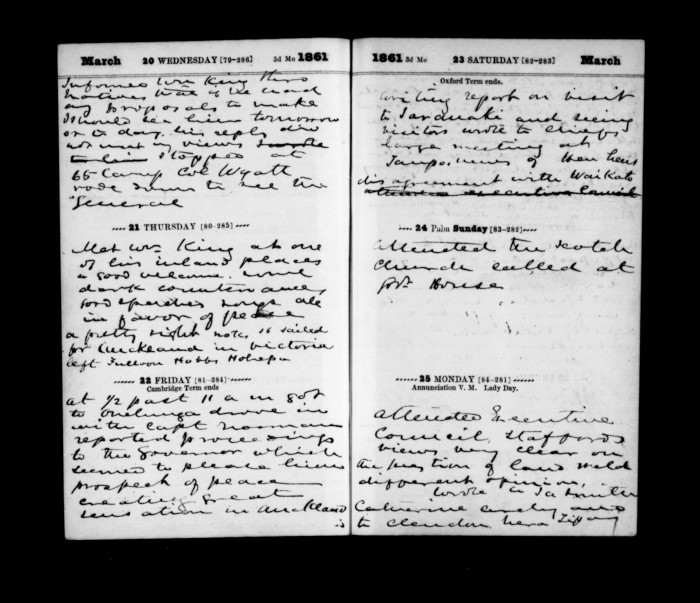 March 20 WEDNESDAY [79-286] 3d Mo 1861
Informed Wm King
natives that if he had
any proposals to make
I should see him tomorrow
or to day. his reply did
not meet my views
stopped at
65 Camp Col Wyatt
rode down to see the
General
21 THURSDAY [80-285]
Met Wm King at one
of his inland places
a good welcome.
dark countenances
good speeches songs all
in favor of peace
a pretty sight sailed
for Auckland in Victoria
left Fulloon Hobbs
22 FRIDAY [81-284]
Cambridge Term ends
at 1/2 past 11 a m got
to Onehunga drove in
with Capt
reported proceedings
to the Governor which
seemed to please him
prospect of peace
creating great
sensation in Auckland
is
1861 3d Mo 23 SATURDAY [82-283] March
Oxford Term ends.
writing report on visit
to Taranaki and seeing
visitors wrote to chiefs
large meeting at
Taupo news of
disagreement with Waikato
attended executive Council
24 Palm Sunday [83-282]
attended the Scotch
Church called at
Govt House
25 MONDAY [84-281]
Annunciation V. M. Lady Day.
attended Executive
Council Staffords
views very clear on
the question of land Weld
different opinion.
wrote to
Catherine and
to Clendon